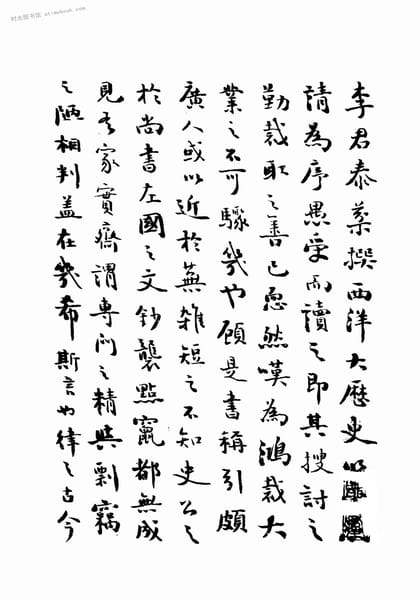 时光图书馆 atimebook.com
李君泰棻撰西洋大歷史
請為序愚受而讀之即其搜討之
勤裁取之善已然嘆為鴻裁大
業之不可驟幾也顧是書稱引頗
廣人或以近於蕪雜短之不知史公之
於尚書左國之文鈔襲點竄都無成
見吾家實齋謂專門之精與剽竊
之陋相判蓋在幾希斯言也律之古今